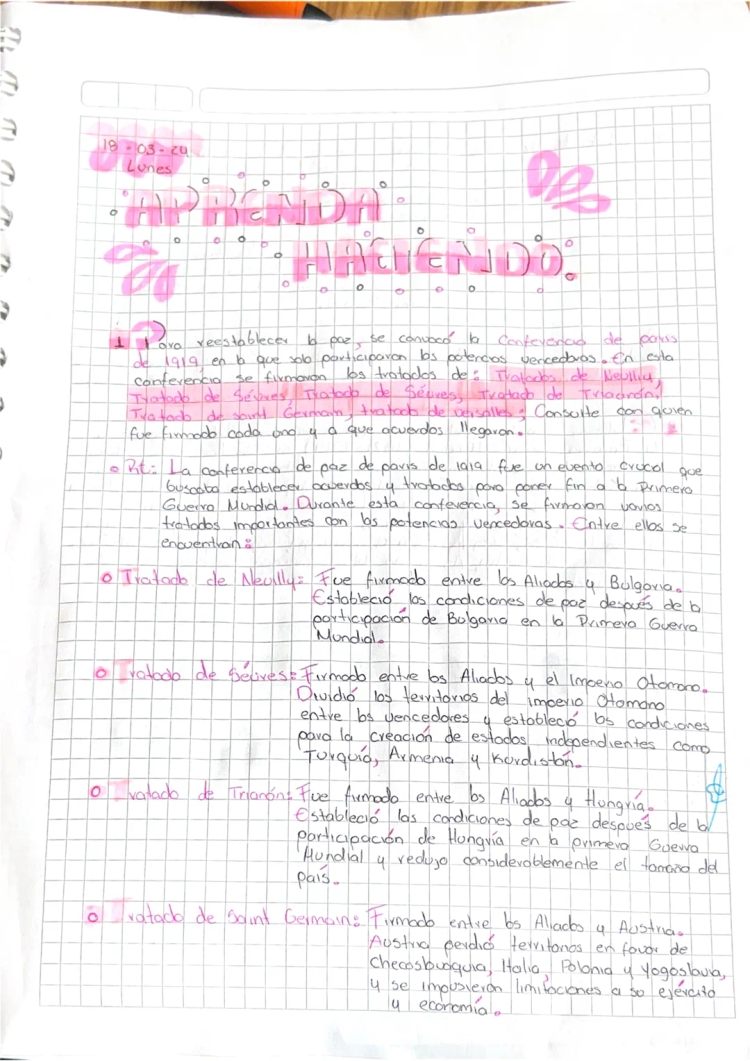 18-03-24
Lunes
APRENDA
HACIENDO
1 Para reestablecer la paz, se convocó la Conferencia de paris
de 1919 en la que solo participaron las potencias vencedoras. En esta
conferencia se firmaron los tratados de: Tratados de Neullia,
Tratado de Sévres, Tratado de Séures, Tratado de Trianón,
Tratado de saint Germain, tratado de versalles; Consulte con quien
fue firmado cada uno y a que acuerdos llegaron.
Rt: La conferencia de paz de paris de 1919 fue un evento crucal que
buscaba establecer acuerdos y tratados para poner fin a la Primera
Guerra Mundial. Durante esta conferencia, se firmaron varios
tratados importantes con las potencias vencedoras. Entre ellos se
encuentran:
Tratado de Neully: Fue firmado entre los Aliados y Bulgaria.
Estableció las condiciones de paz después de la
participación de Bulgaria en la Primera Guerra
Mundial.
Tratado de Séures: Firmado entre los Aliados y el Imperio Otomano.
Dividió los territorios del imperio Otomano
entre los vencedores y estableció las condiciones
para la creación de estados independientes como
Turquía, Armenia y Kurdistán.
Tratado de Trianón: Fue firmado entre los Aliados y Hungría.
Estableció las condiciones de paz después de la
participación de Hungría en la primera Guerra
Mundial y redujo considerablemente el tamaño del
país.
Tratado de Saint Germain: Firmado entre los Aliados y Austria.
Austria perdió territorios en favor de
Checoslovaquia, Italia, Polonia y Yogoslavia,
y se impusieron limitaciones a su ejército
y economía.